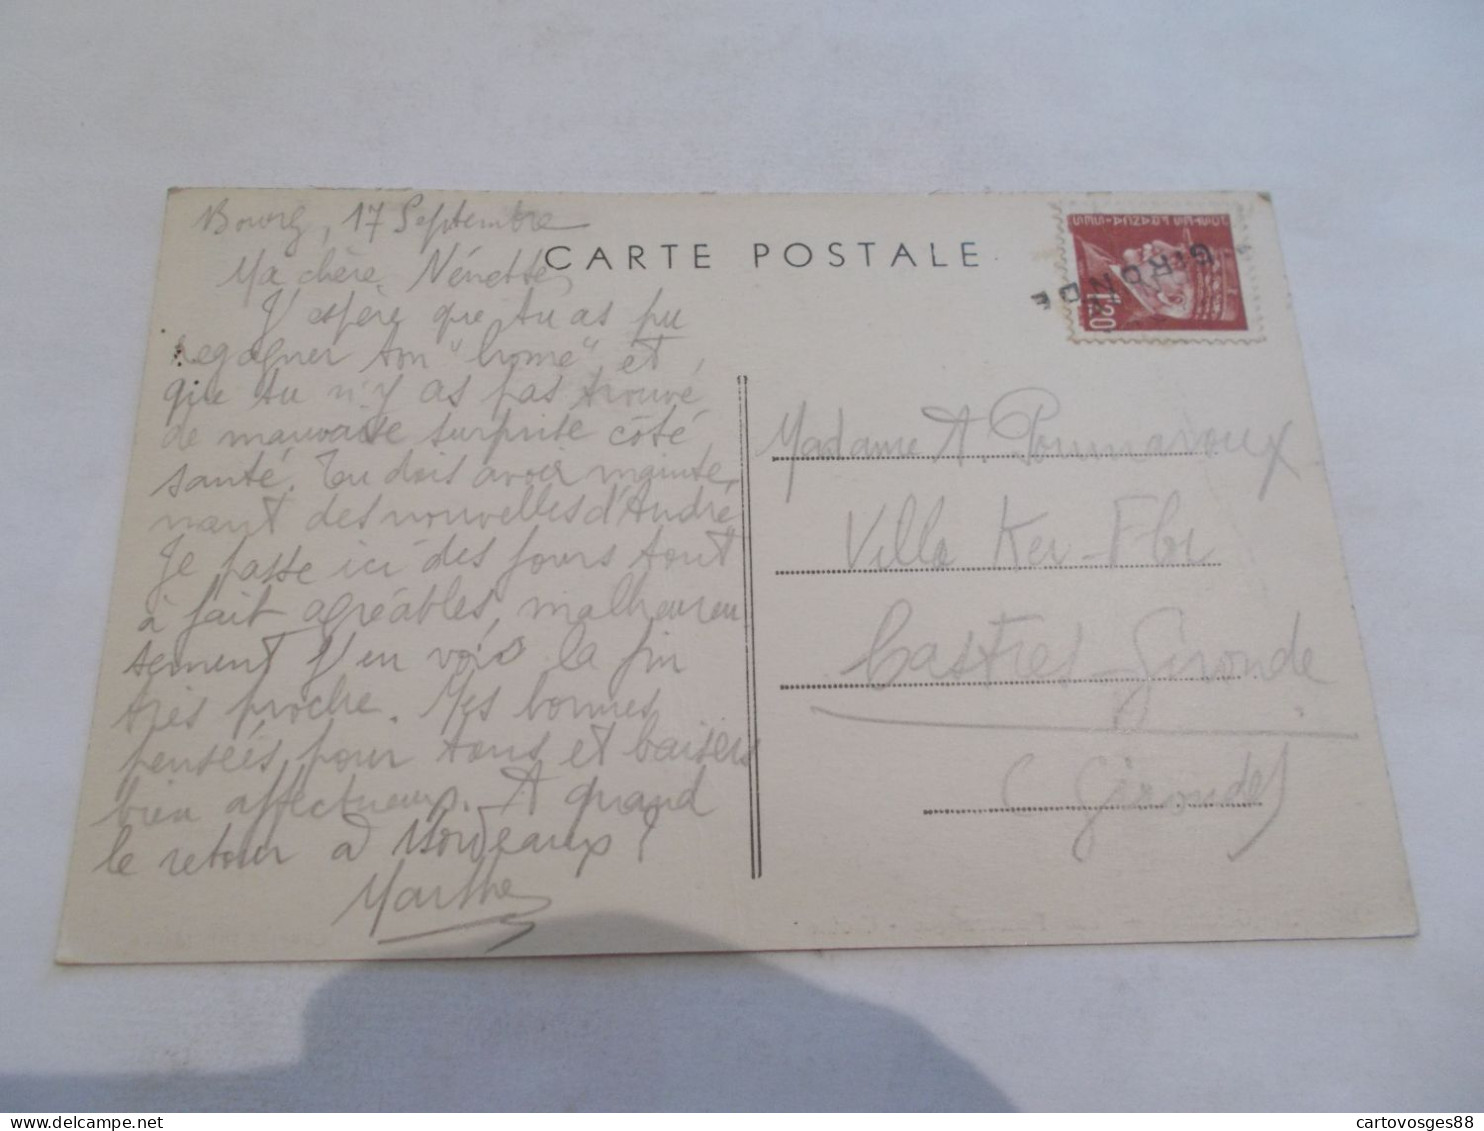 Bourg, 17 Septembre
CARTE POSTALE
Ma chère Nénette,
J'espère que tu as pu
regagner ton "home" et
que tu n'y as pas trouvé
de mauvaise surprise côté
santé. Tu dois avoir mainte-
nant des nouvelles d'André
Je passe ici des jours tout
à fait agréables, malheureu
sement j'en vois la fin
très proche. Mes bonnes
pensées pour tous et baisers
bien affectueux. A quand
le retour à Bordeaux ?
Marthe
GIRONDE
1F20
Madame A. Pommaroux
Villa Ker-Flor
Castres-Gironde
(Gironde)
cartovosges88